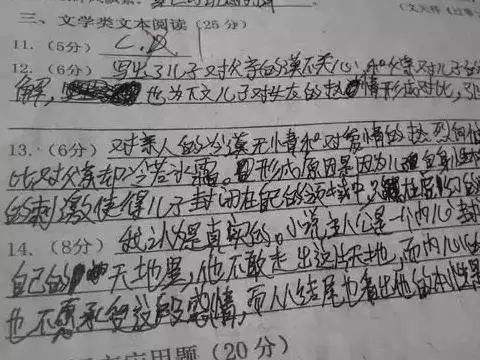 (文天祥《过零
三、文学类文本阅读(25分)
11.(5分) C.D
12.(6分) 写出了儿子对父亲的漠不关心,和父亲对儿子的
解, 也为下文儿子对女友的热情形成对比,
13.(6分) 对亲人的冷漠无情和对爱情的热烈向
比对父亲却冷若冰霜。 形成原因是因为儿子自身
的刺激使得儿子封闭在自己的领域中,
14.(8分) 我认为是真实的。小说主人公是一个内心封
自己的 天地里,他不敢走出这片天地,而内心
也不愿承受这段感情,而从结尾也看出他的本性
应用题(20分)